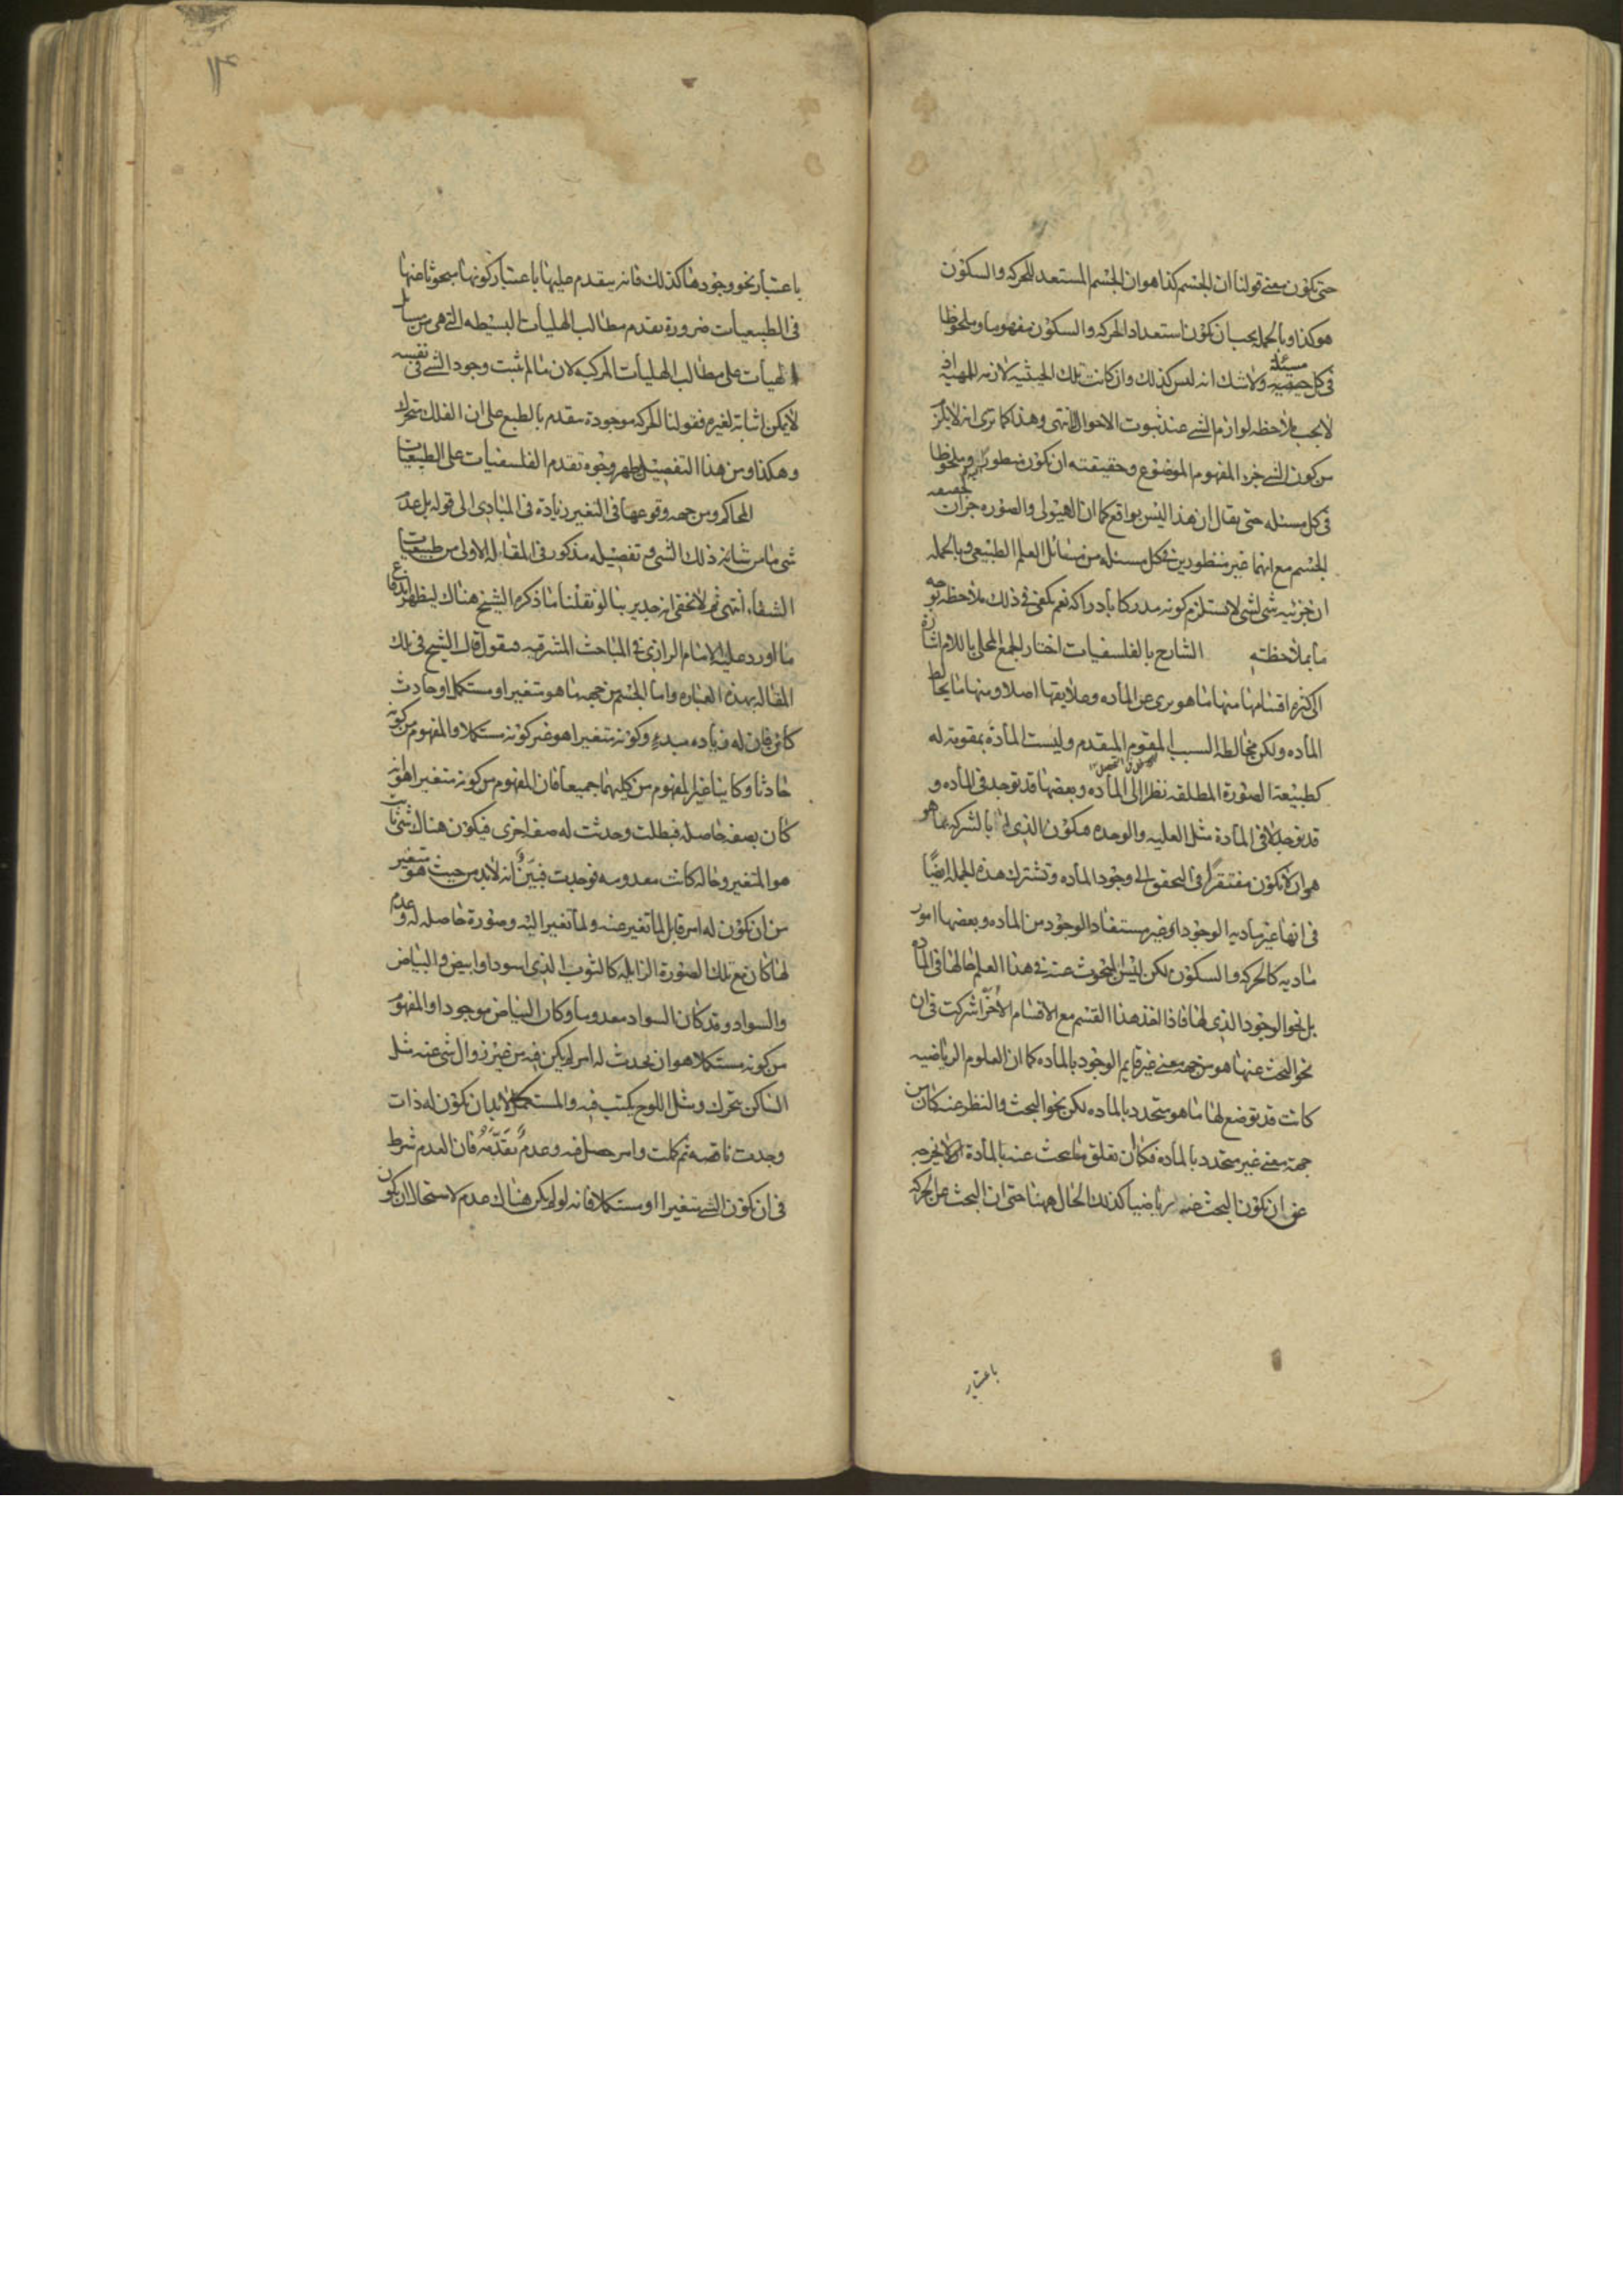 حتى تكون معنى قولنا ان الجسم كذا هو ان الجسم المستعد للحركه والسكون
هو كذا وبالجمله يجب ان تكون استعداد الحركه والسكون مفهوما وملحوظا
فى كل مسئله ولا شك انه ليس كذلك وان كانت تلك الحيثيه لازمه للمهيه اذ
لا يجب ملاحظه لوازم الشى عند ثبوت الاحوال انتهى وهذا كما ترى انه لا يلزم
من كون الشى جزء المفهوم الموضوع وحقيقته ان تكون منظورا وملحوظا
فى كل مسئله حتى يقال ان هذا ليس بواقع كما ان الهيولى والصوره جزان
الجسم مع انهما غير منظورين فى كل مسئله من مسائل العلم الطبيعى وبالجمله
ان جزئيه شى لشى لا يستلزم كونه مدركا بادراكه نعم يكفى فى ذلك ملاحظه بوجه
ما بملاحظته الشارح بالفلسفيات اختار الجمع المحلى باللام اشارة
الى كثره اقسامها منها ما هو برى عن الماده وعلايقها اصلا ومنها ما يخالط
الماده ولكن مخالطه السبب المقوم المتقدم وليست المادة بمقومة له
كطبيعة الصورة المطلقه نظرا الى الماده وبعضها قد توجد فى الماده و
قد توجد لا فى المادة مثل العليه والوحده فيكون الذى لها بالشركه بما هو
هو ان لا يكون مفتقرا فى التحقق الى وجود الماده وتشترك هذه الجمله ايضًا
فى انها غير ماديه الوجود اى غير مستفاد الوجود من الماده وبعضها امور
ماديه كالحركه والسكون لكن ليس المبحوث عنه فى هذا العلم حالها فى الماده
بل نحو الوجود الذى لها فاذا اخذ هذا القسم مع الاقسام الاُخَر اشتركت فى ان
نحو البحث عنها هو من جهة معنى غير قايم الوجود بالماده كما ان العلوم الرياضيه
كانت قد توضع لها ما هو متحدد بالماده لكن نحو البحث والنظر عنه كان من
جهة معنى غير متحدد بالماده فكان تعلق ما يبحث عنه بالمادة لا يخرجه
عن ان تكون البحث عنه رياضيا كذلك الحال ههنا حتى ان البحث عن الحركه
باعتبار
باعتبار نحو وجودها كذلك فانه يتقدم عليها باعتبار كونها مبحوثا عنها
فى الطبيعيات ضرورة تقدم مطالب الهليات البسيطه التى هى من مسايل
الهيات على مطالب الهليات المركبه لان ما لم يثبت وجود الشى فى نفسه
لا يمكن اثباته لغيره فقولنا الحركه موجودة مقدم بالطبع على ان الفلك متحرك
وهكذا ومن هذا التفصيل ظهر وجوه تقدم الفلسفيات على الطبيعيات
المحاكم ومن جهه وقوعها فى التغير زيادة فى المبادى الى قوله بل عدم
شى ما من شانه ذلك الشى وتفصيله مذكور فى المقاله الاولى من طبيعيات
الشفاء انتهى ثم لا يخفى انه جدير بنا لو نقلنا ما ذكره الشيخ هناك ليظهر اندفاع
ما اورد عليه الامام الرازى فى المباحث المشرقيه فنقول قال الشيخ فى تلك
المقاله بهذه العباره واما الجسم من جهه ما هو متغير او مستكمل او حادث
كائن فان له زياده مبدء وكونه متغيرا هو غير كونه مستكملا والمفهوم من كونه
حادثا وكاينا غير المفهوم من كليهما جميعا فان المفهوم من كونه متغيرا هو انه
كان بصفه حاصله فبطلت وحدثت له صفه اخرى فيكون هناك شى ثابت
هو المتغير وحاله كانت معدومه فوجدت فبَيّنٌ انه لابد من حيث هو متغير
من ان تكون له امر قابل لما تغير عنه ولما تغير اليه وصورة حاصله له وعدم
لها كان مع تلك الصورة الزايله كالثوب الذى اسود او ابيض والبياض
والسواد وقد كان السواد معدوما وكان البياض موجودا والمفهوم
من كونه مستكملا هو ان يحدث له امر لم يكن فيه من غير زوال شى عنه مثل
الساكن يتحرك ومثل اللوح يكتب فيه والمستكمل لابد ان تكون له ذات
وجدت ناقصه ثم كملت وامر حصل فيه وعدمٌ تَقَدَّمَهُ فان العدم شرط
فى ان تكون الشى متغيرا او مستكملا فانه لو لم يكن هناك عدم لاستحال ان تكون